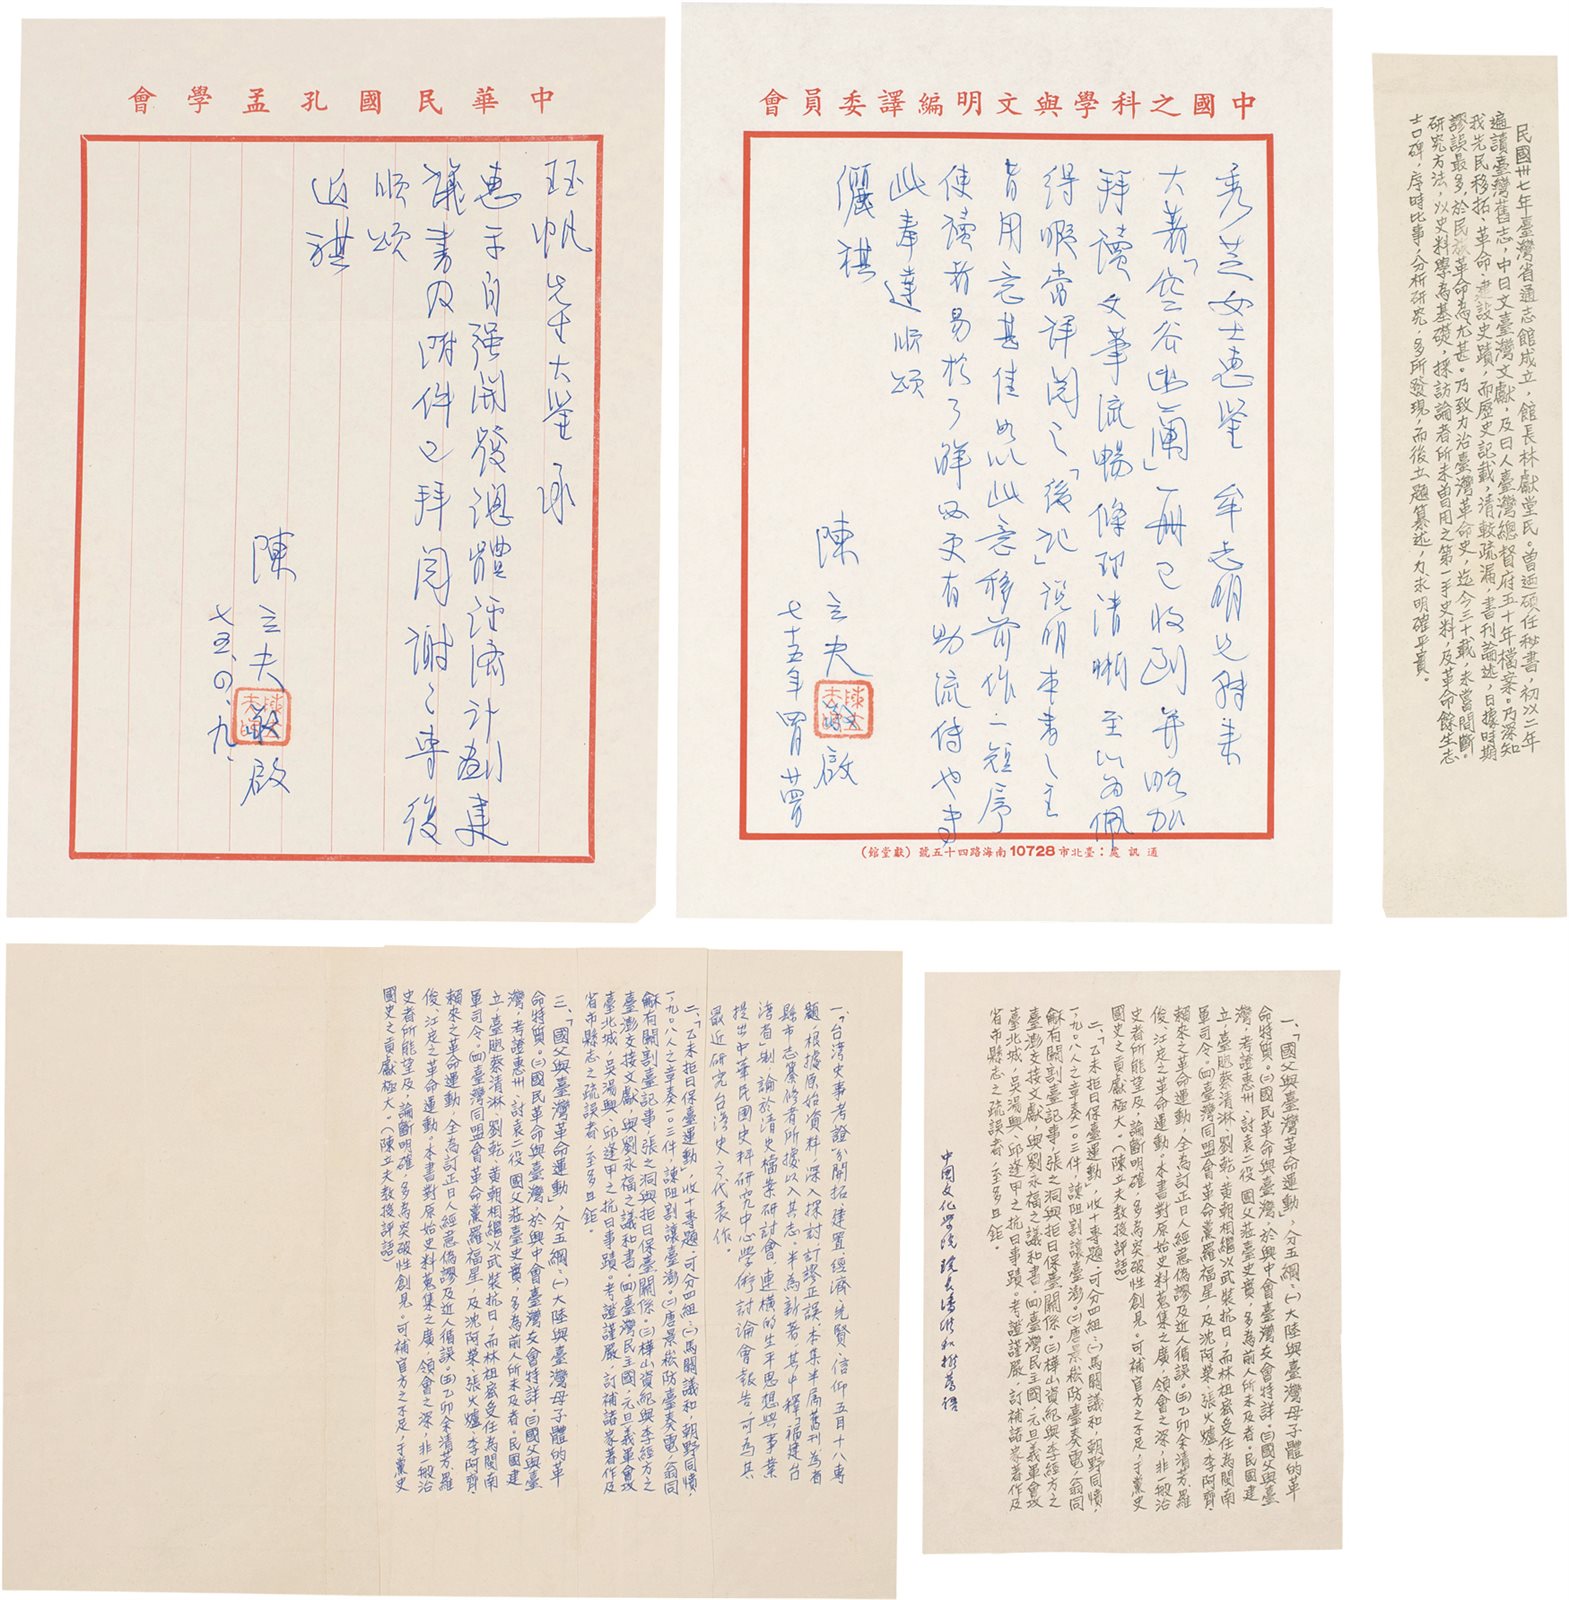 中華民國孔孟學會
珏帆先生大鑒承
惠示自强開發總體經濟計劃建
議書及附件已拜閱謝謝專復
順頌
近祺
陳立夫敬啟
七五、四、九、
中國之科學與文明編譯委員會
秀芝女士惠鑒 牟志明兄轉來
大著「空谷幽蘭」一冊已收到並略加
拜讀文筆流暢條理清晰至以為佩
得暇當詳閱之「後記」說明本書之主
旨用意甚佳如以此意移前作一短序
使讀者易於了解必更有助流傳也專
此奉達順頌
儷祺
陳立夫敬啟
七十五年四月廿四日
通訊處：臺北市10728南海路四十五號（獻堂館）
民國卅七年臺灣省通志館成立，館長林獻堂氏。曾迺碩任秘書，初以二年
遍讀臺灣舊志，中日文臺灣文獻，及日人臺灣總督府五十年檔案。乃深知
我先民移拓、革命、建設史蹟，而歷史記載，清較疏漏，書刊論述，日據時期
謬誤最多，於民族革命為尤甚。乃致力治臺灣革命史，迄今三十載，未嘗間斷。
研究方法，以史料學為基礎，採訪論者所未曾用之第一手史料，及革命餘生志
士口碑，序時比事，分析研究，多所發現，而後立題纂述，力求明確平實。
一、「台湾史事考證」分開拓、建置、經濟、先賢、信仰五目十八專
題，根據原始資料，深入探討，訂謬正誤，本集半屬舊刊，為省
縣市志纂修者所據以入其志。半為新著，其中釋「福建台
湾省」制，論於清史檔案研討會，連橫的生平思想與事業
提出中華民國史料研究中心學術討論會報告，可為其
最近研究台湾史之代表作。
二、「乙未拒日保臺運動」，收十專題，可分四組：㈠馬關議和，朝野同憤，
一、九〇八人之章奏一〇三件，諫阻割讓臺澎。㈡唐景崧防臺奏電，翁同
龢有關割臺記事，張之洞與拒日保臺關係。㈢樺山資紀與李經方之
臺澎交接文獻，與劉永福之議和書。㈣臺灣民主國，元旦義軍會攻
臺北城，吳湯興、邱逢甲之抗日事蹟。考證謹嚴，訂補諸家著作及
省市縣志之疏誤者，至多且鉅。
三、「國父與臺灣革命運動」，分五綱：㈠大陸與臺灣母子體的革
命特質。㈡國民革命與臺灣，於興中會臺灣支會特詳。㈢國父與臺
灣，考證惠州、討袁二役，國父蒞臺史實，多為前人所未及者。民國建
立，臺胞蔡清淋、劉乾、黃朝相繼以武裝抗日，而林祖密受任為閩南
軍司令。㈣臺灣同盟會革命黨羅福星，及沈阿榮、張火爐、李阿齊、
賴來之革命運動，全為訂正日人經意偽謬及近人循誤。㈤乙卯余清芳、羅
俊、江定之革命運動。本書對原始史料蒐集之廣，領會之深，非一般治
史者所能望及，論斷明確，多為突破性創見。可補官方之不足，于黨史
國史之貢獻極大。（陳立夫教授評語）
一、「國父與臺灣革命運動」，分五綱：㈠大陸與臺灣母子體的革
命特質。㈡國民革命與臺灣，於興中會臺灣支會特詳。㈢國父與臺
灣，考證惠州、討袁二役，國父蒞臺史實，多為前人所未及者。民國建
立，臺胞蔡清淋、劉乾、黃朝相繼以武裝抗日，而林祖密受任為閩南
軍司令。㈣臺灣同盟會革命黨羅福星，及沈阿榮、張火爐、李阿齊、
賴來之革命運動，全為訂正日人經意偽謬及近人循誤。㈤乙卯余清芳、羅
俊、江定之革命運動。本書對原始史料蒐集之廣，領會之深，非一般治
史者所能望及，論斷明確，多為突破性創見。可補官方之不足，于黨史
國史之貢獻極大。（陳立夫教授評語）
二、「乙未拒日保臺運動」，收十專題，可分四組：㈠馬關議和，朝野同憤，
一、九〇八人之章奏一〇三件，諫阻割讓臺澎。㈡唐景崧防臺奏電，翁同
龢有關割臺記事，張之洞與拒日保臺關係。㈢樺山資紀與李經方之
臺澎交接文獻，與劉永福之議和書。㈣臺灣民主國，元旦義軍會攻
臺北城，吳湯興、邱逢甲之抗日事蹟。考證謹嚴，訂補諸家著作及
省市縣志之疏誤者，至多且鉅。
中国文化学院院長潘維和